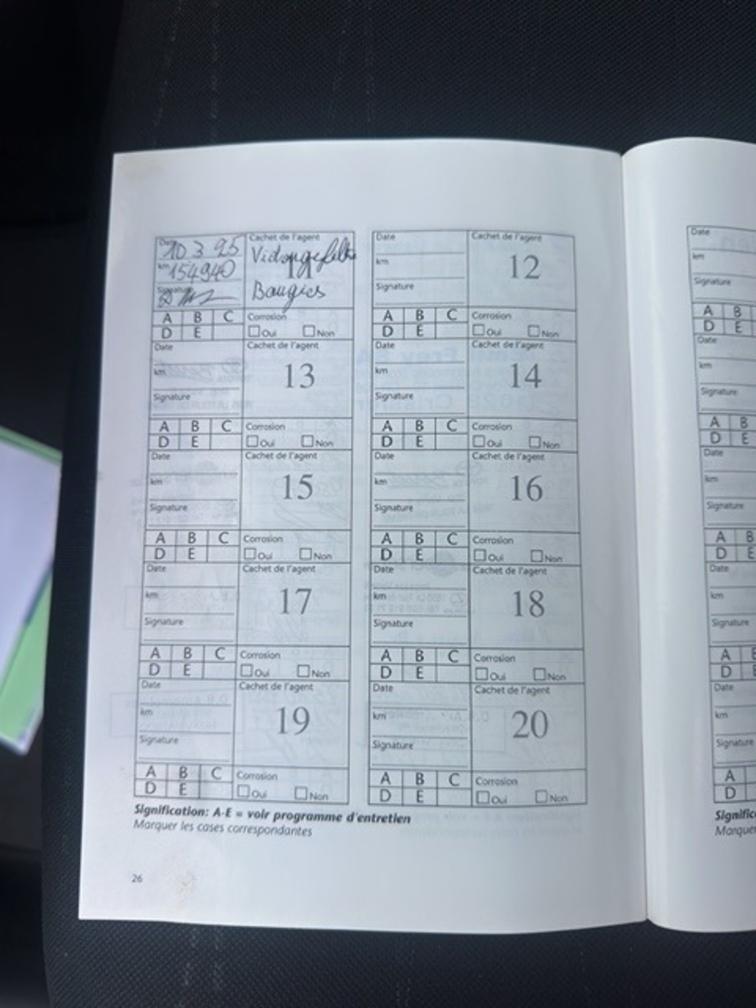 Date 10 3 25 Cachet de l'agent Vidange filtre
km 154940 11
Signature Bougies
A B C Corrosion
D E Oui Non
Date Cachet de l'agent
km 12
Signature
A B C Corrosion
D E Oui Non
Date Cachet de l'agent
km 13
Signature
A B C Corrosion
D E Oui Non
Date Cachet de l'agent
km 14
Signature
A B C Corrosion
D E Oui Non
Date Cachet de l'agent
km 15
Signature
A B C Corrosion
D E Oui Non
Date Cachet de l'agent
km 16
Signature
A B C Corrosion
D E Oui Non
Date Cachet de l'agent
km 17
Signature
A B C Corrosion
D E Oui Non
Date Cachet de l'agent
km 18
Signature
A B C Corrosion
D E Oui Non
Date Cachet de l'agent
km 19
Signature
A B C Corrosion
D E Oui Non
Date Cachet de l'agent
km 20
Signature
A B C Corrosion
D E Oui Non
Signification: A-E = voir programme d'entretien
Marquer les cases correspondantes
26